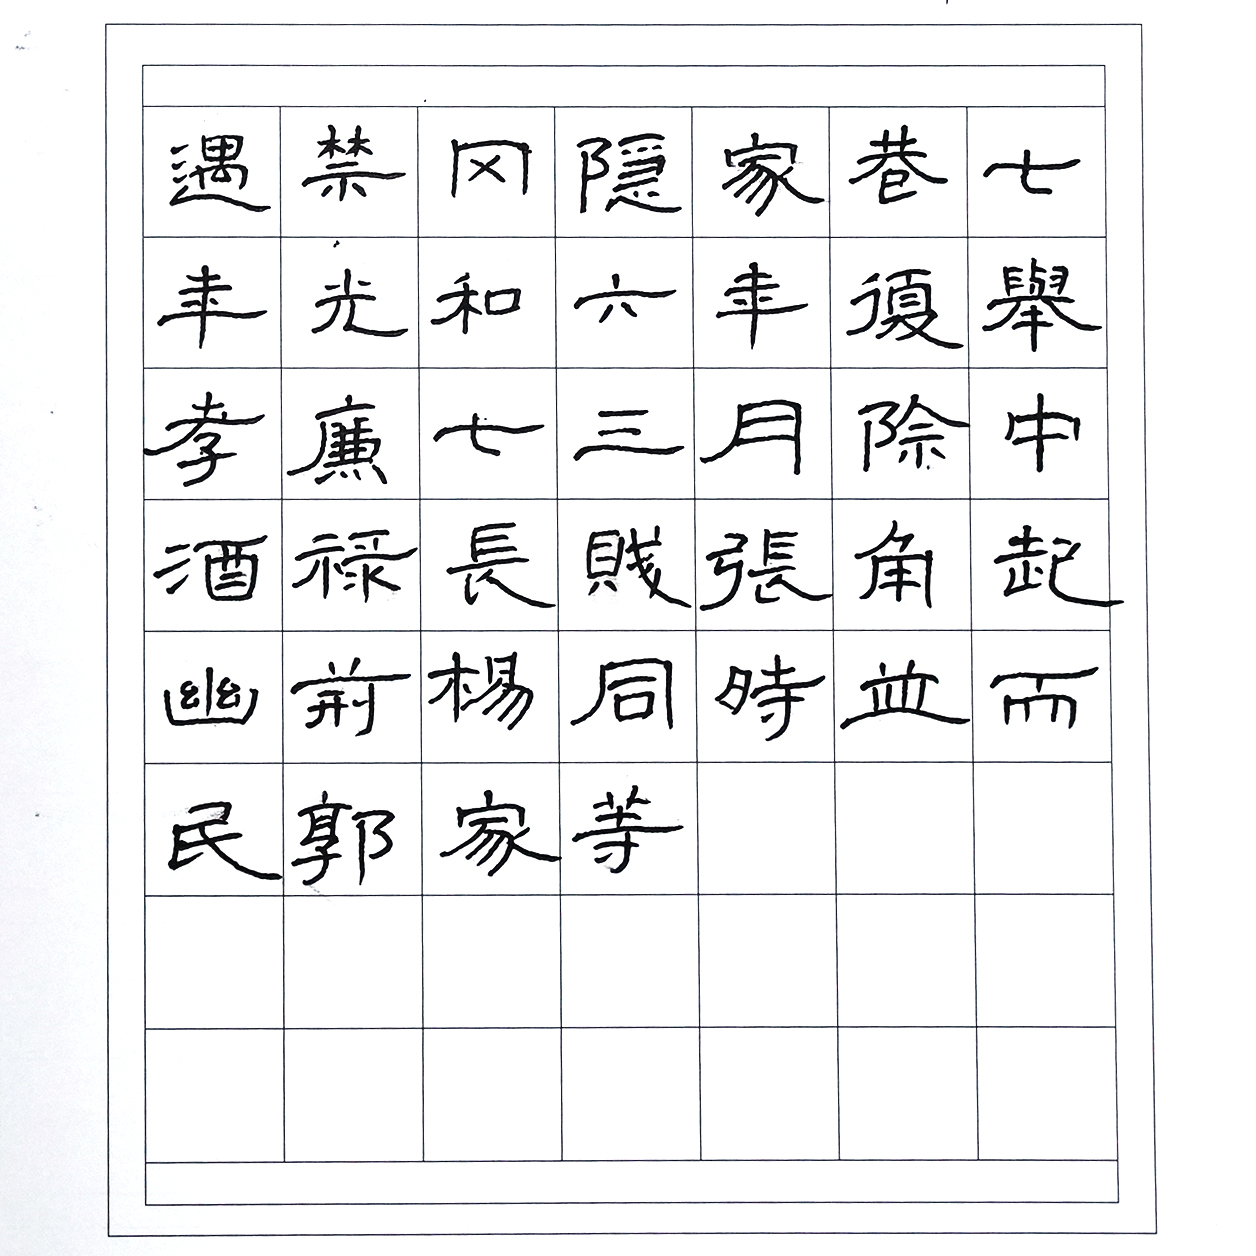 遇禁冈隱家巷七
年光和六年復舉
孝廉七三月除中
酒祿長賊張角起
幽荊楊同時並而
民郭家等